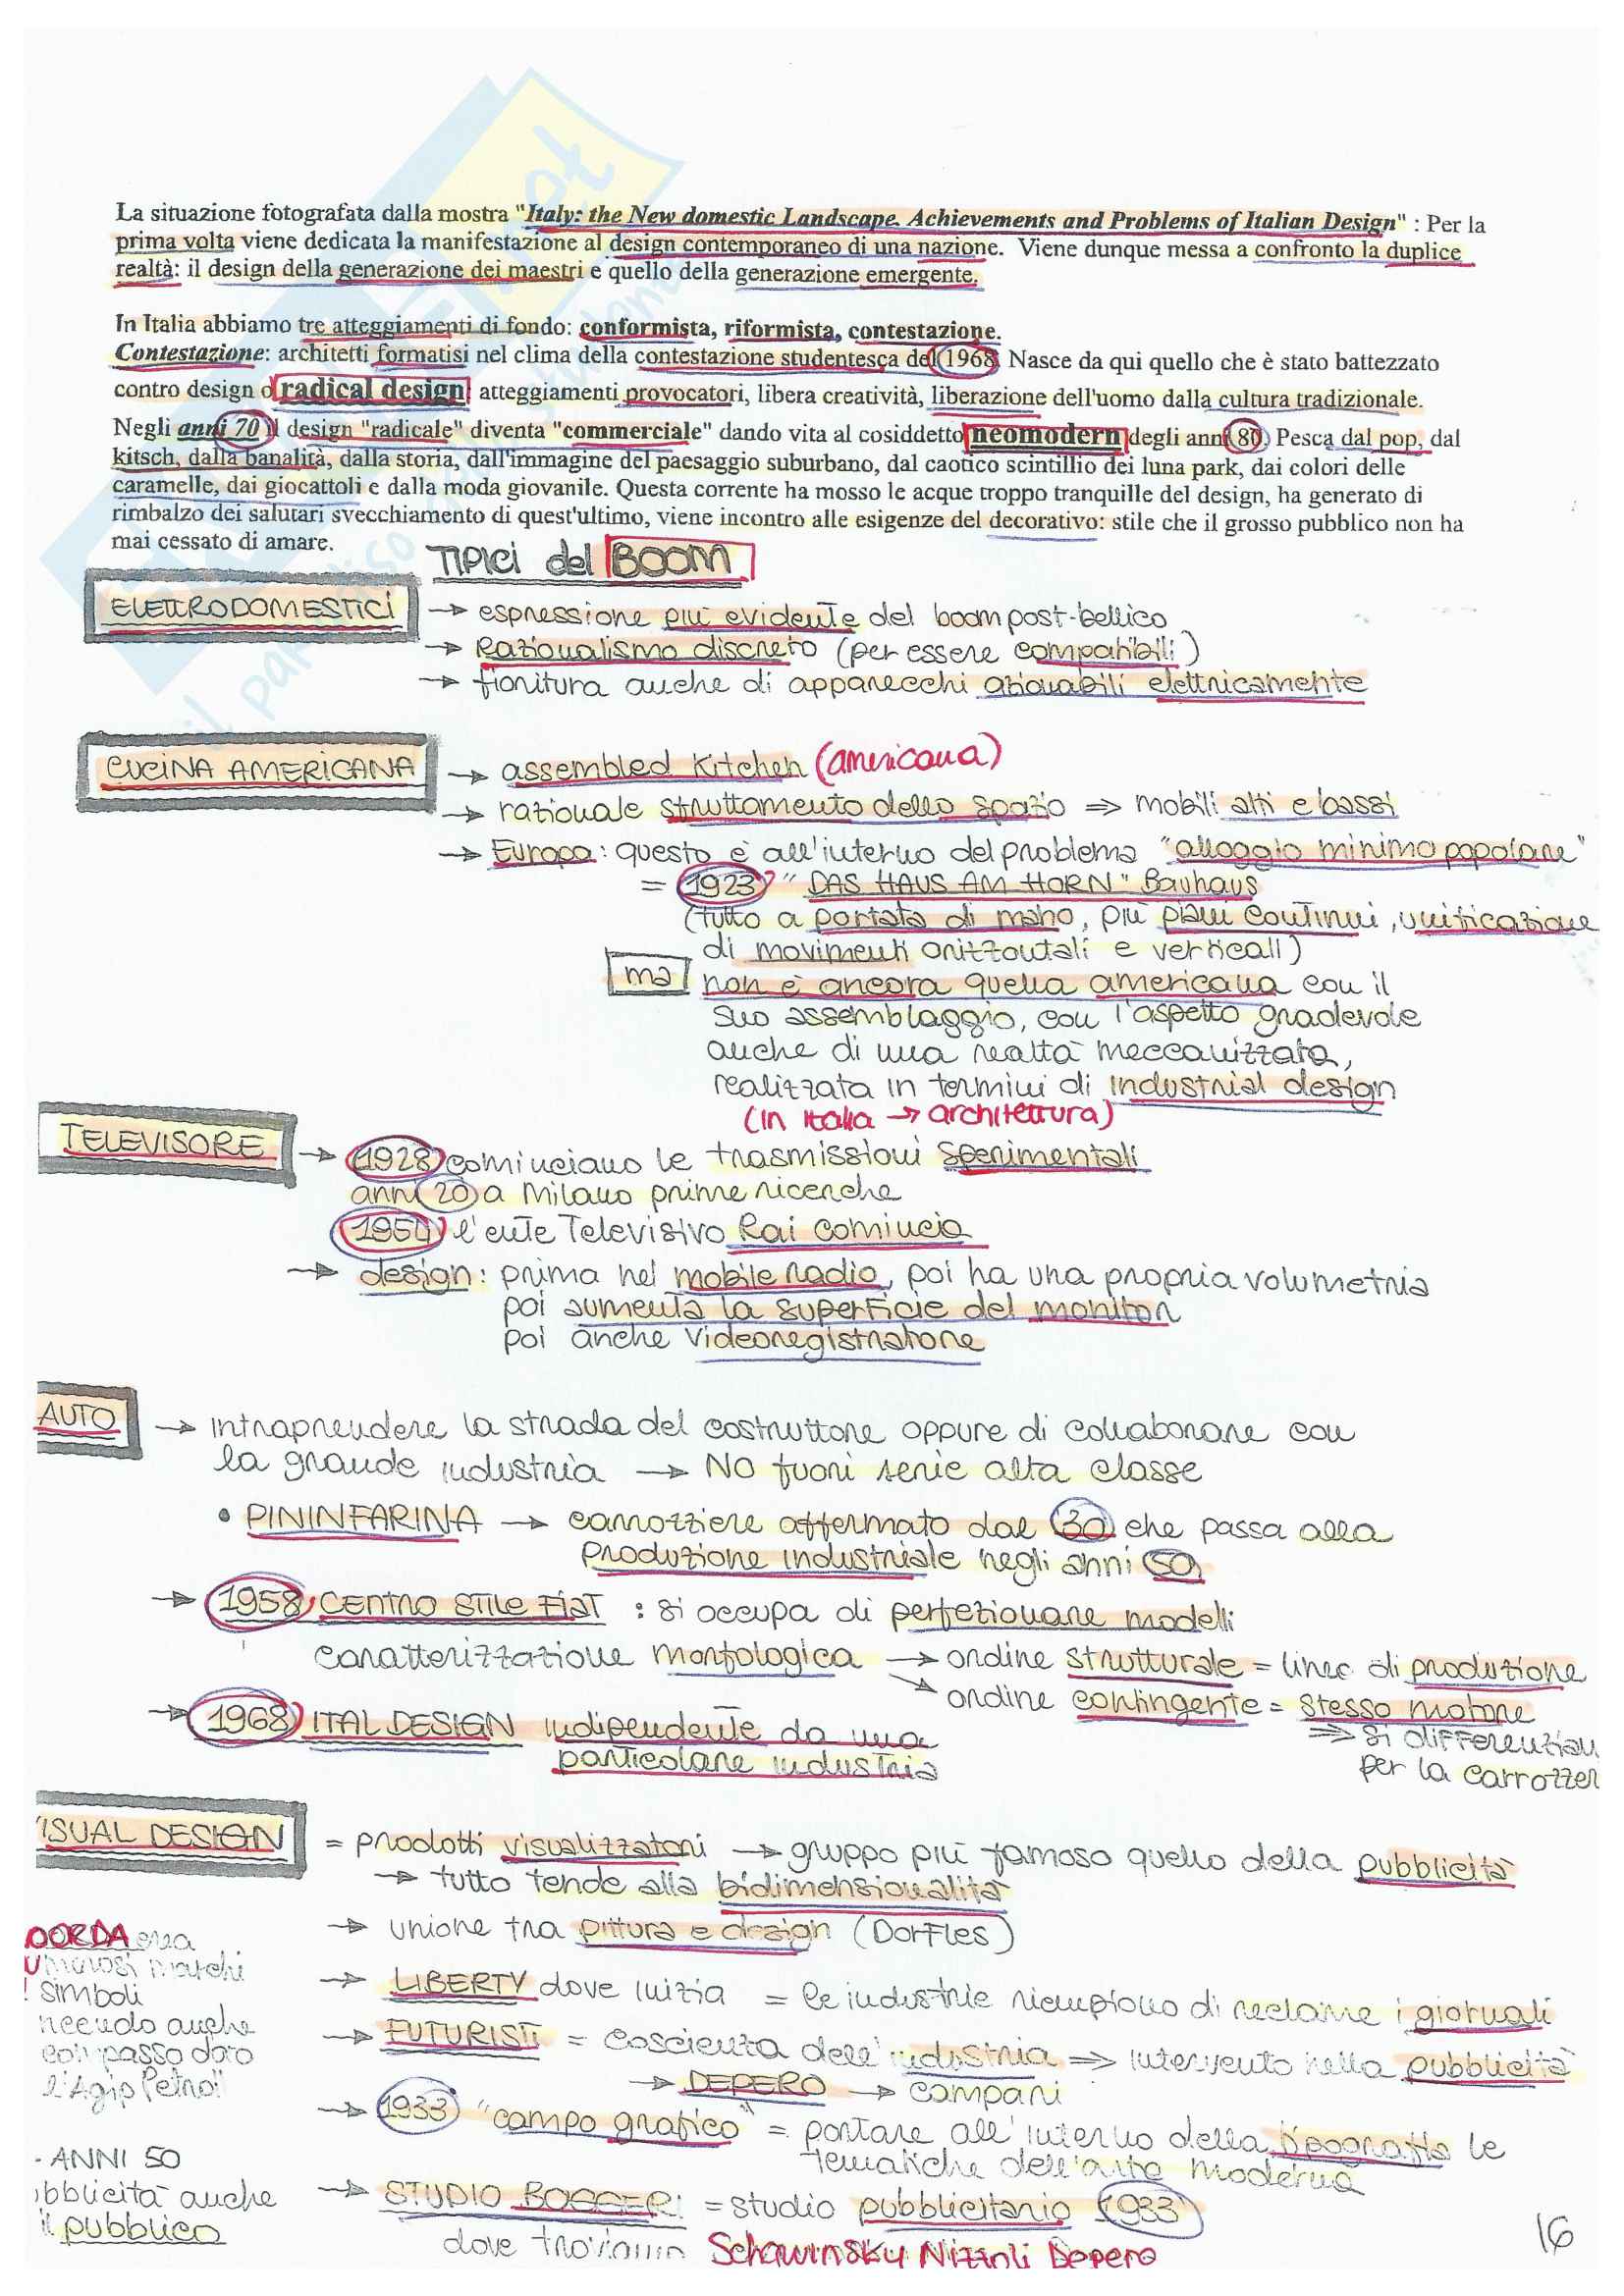 La situazione fotografata dalla mostra "Italy: the New domestic Landscape. Achievements and Problems of Italian Design" : Per la
prima volta viene dedicata la manifestazione al design contemporaneo di una nazione. Viene dunque messa a confronto la duplice
realtà: il design della generazione dei maestri e quello della generazione emergente.
In Italia abbiamo tre atteggiamenti di fondo: conformista, riformista, contestazione.
Contestazione: architetti formatisi nel clima della contestazione studentesca del 1968. Nasce da qui quello che è stato battezzato
contro design o radical design: atteggiamenti provocatori, libera creatività, liberazione dell'uomo dalla cultura tradizionale.
Negli anni 70 il design "radicale" diventa "commerciale" dando vita al cosiddetto neomodern degli anni 80. Pesca dal pop, dal
kitsch, dalla banalità, dalla storia, dall'immagine del paesaggio suburbano, dal caotico scintillio dei luna park, dai colori delle
caramelle, dai giocattoli e dalla moda giovanile. Questa corrente ha mosso le acque troppo tranquille del design, ha generato di
rimbalzo dei salutari svecchiamento di quest'ultimo, viene incontro alle esigenze del decorativo: stile che il grosso pubblico non ha
mai cessato di amare.
TIPICI del BOOM
ELETTRODOMESTICI → espressione più evidente del boom post-bellico
→ Razionalismo discreto (per essere compatibili)
→ fioritura anche di apparecchi azionabili elettricamente
CUCINA AMERICANA → assembled Kitchen (americana)
→ razionale sfruttamento dello spazio ⇒ mobili alti e bassi
→ Europa: questo è all'interno del problema "alloggio minimo popolare"
= 1923 "DAS HAUS AM HORN" Bauhaus
(tutto a portata di mano, più piani continui, unificazione
di movimenti orizzontali e verticali)
ma non è ancora quella americana con il
suo assemblaggio, con l'aspetto gradevole
anche di una realtà meccanizzata,
realizzata in termini di industrial design
(in Italia → architettura)
TELEVISORE → 1928 cominciano le trasmissioni sperimentali
anni 20 a Milano prime ricerche
1954 l'ente Televisivo Rai comincia
→ design: prima nel mobile radio, poi ha una propria volumetria
poi aumenta la superficie del monitor
poi anche videoregistratore
AUTO → intraprendere la strada del costruttore oppure di collaborare con
la grande industria → NO fuori serie alta classe
• PININFARINA → carrozziere affermato dal 30 che passa alla
produzione industriale negli anni 50
→ 1958 CENTRO STILE FIAT : si occupa di perfezionare modelli
caratterizzazione morfologica → ordine strutturale = linea di produzione
→ ordine contingente = stesso motore
⇒ si differenzian
per la carrozzer
→ 1968 ITAL DESIGN indipendente da una
particolare industria
VISUAL DESIGN = prodotti visualizzatori → gruppo più famoso quello della pubblicità
→ tutto tende alla bidimensionalità
→ unione tra pittura e design (Dorfles)
→ LIBERTY dove inizia = le industrie riempiono di reclame i giornali
→ FUTURISTI = coscienza dell'industria ⇒ intervento nella pubblicità
→ DEPERO → campari
→ 1933 "campo grafico" = portare all'interno della tipografia le
tematiche dell'arte moderna
→ STUDIO BOGGERI = studio pubblicitario 1933
dove troviamo Schawinsky Nizzoli Depero
DORDA crea
umerosi marchi
! simboli
ncendo anche
con passo d'oro
l'Agip Petrol"
- ANNI 50
ubblicità anche
il pubblico
16